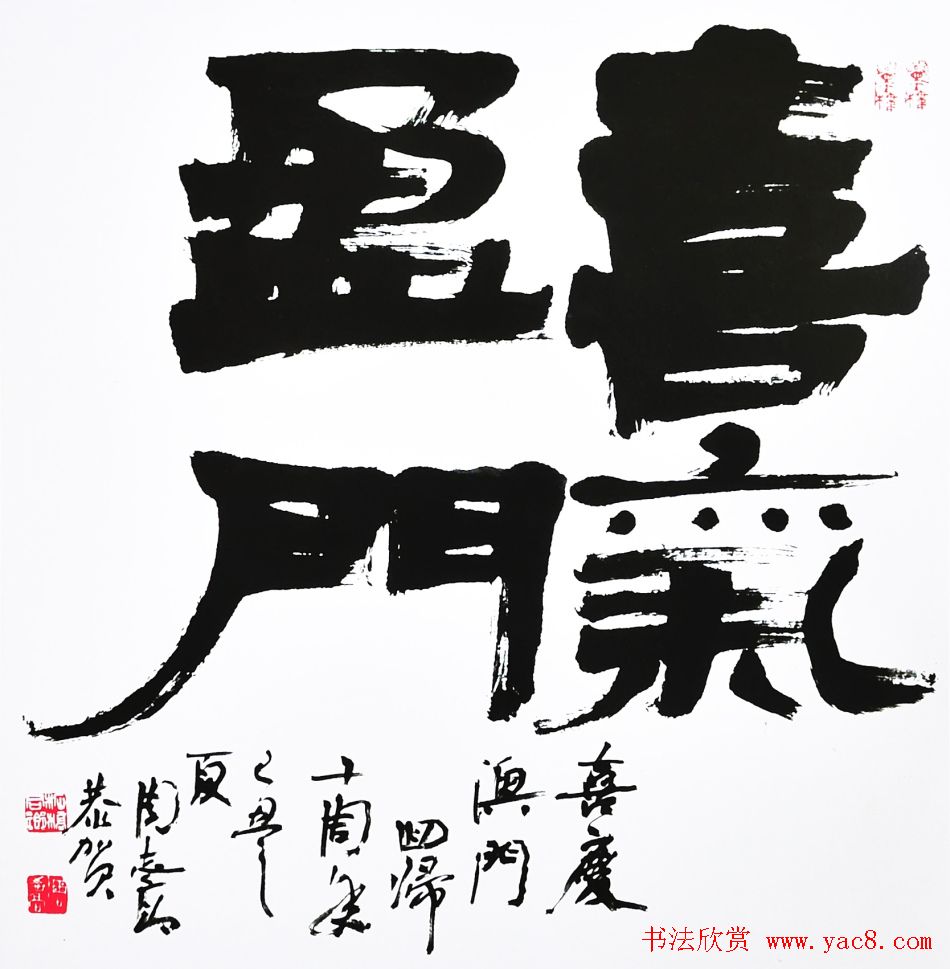 喜氣
盈門
喜慶
澳門
回歸
十周年
己丑之
夏
周志高
恭贺
书法欣赏 www.yac8.com